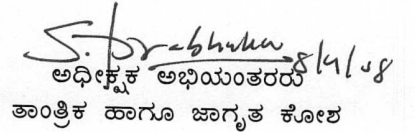 S. Prabhakar 8/4/08
ಅಧೀಕ್ಷಕ ಅಭಿಯಂತರರು
ತಾಂತ್ರಿಕ ಹಾಗೂ ಜಾಗೃತ ಕೋಶ